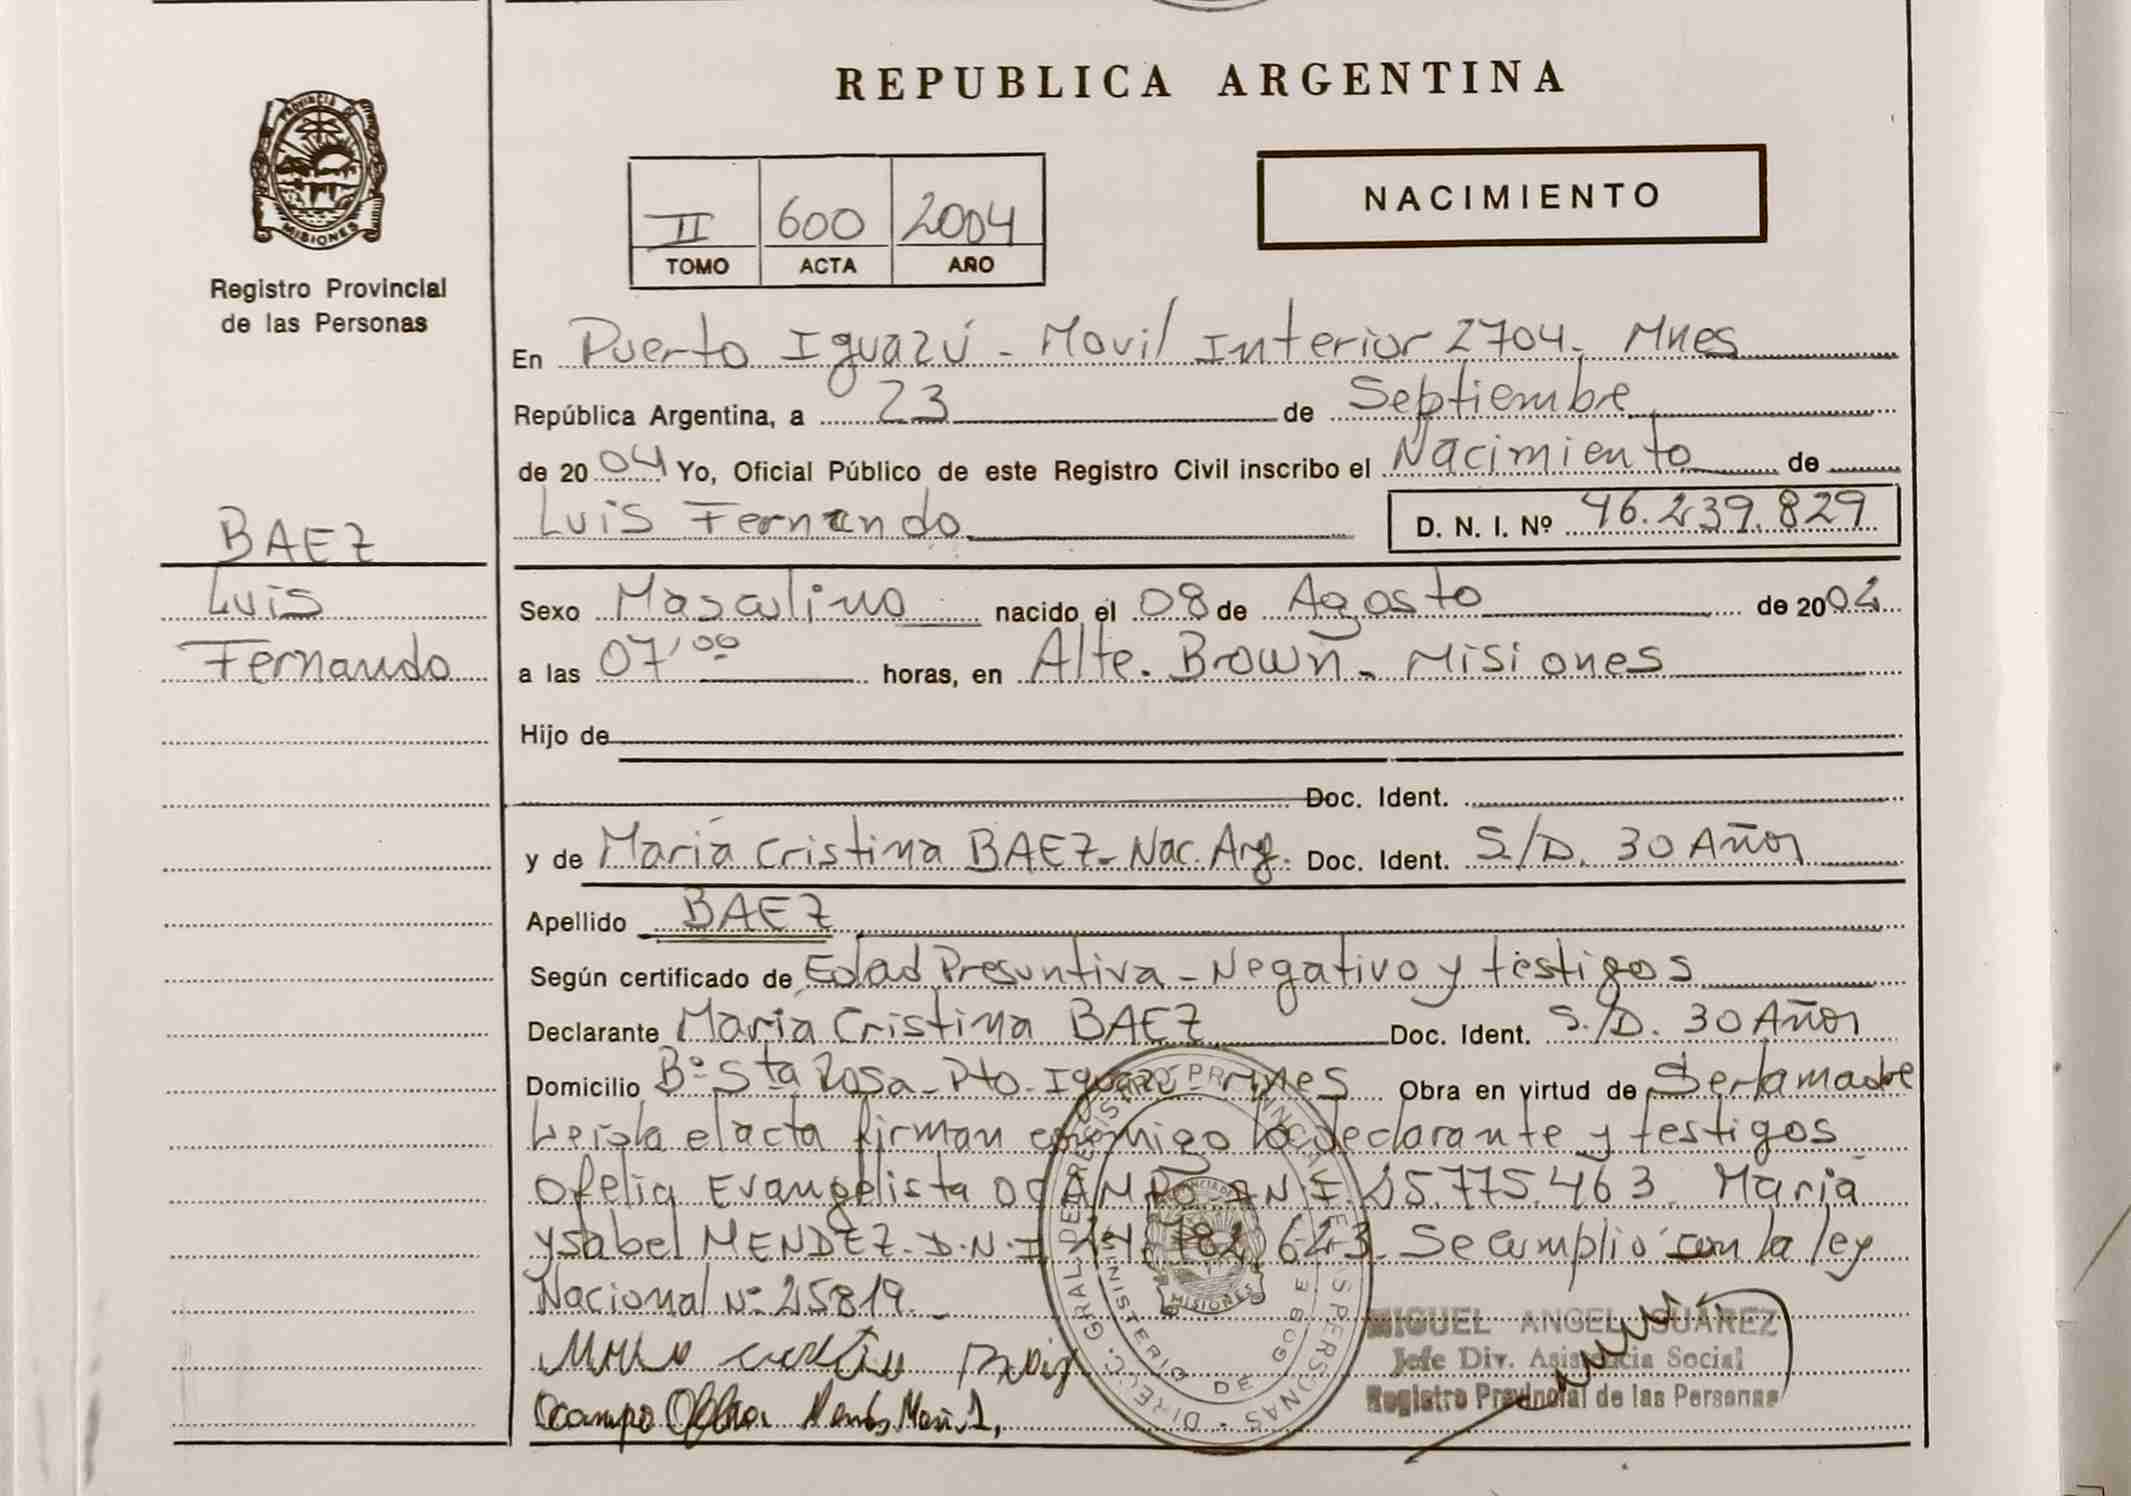 REPUBLICA ARGENTINA
PROVINCIA DE
MISIONES
Registro Provincial
de las Personas
NACIMIENTO
II 600 2004
TOMO ACTA AÑO
En Puerto Iguazú - Movil Interior 2704. Mnes
República Argentina, a 23 de Septiembre
de 2004 Yo, Oficial Público de este Registro Civil inscribo el Nacimiento de
Luis Fernando D. N. I. Nº 46.239.829
BAEZ
Luis
Fernando
Sexo Masculino nacido el 08 de Agosto de 2004
a las 07'00 horas, en Alte. Brown - Misiones
Hijo de
Doc. Ident.
y de María Cristina BAEZ - Nac. Arg. Doc. Ident. S/D. 30 Años
Apellido BAEZ
Según certificado de Edad Presuntiva - Negativo y testigos
Declarante María Cristina BAEZ Doc. Ident. S./D. 30 Años
Domicilio Bº Sta Rosa - Pto. Iguazú - Mnes Obra en virtud de Ser la madre
Leida el acta firman conmigo la declarante y testigos
Ofelia Evangelista OCAMPO D.N.I. 25.775.463. María
Ysabel MENDEZ. D.N.I. 643. Se cumplió con la ley
Nacional Nº 25819.
Ocampo
MIGUEL ANGEL SUAREZ
Jefe Div. Asistencia Social
Registro Provincial de las Personas
DIRECC. GRAL. DE REGISTRO PROVINCIAL DE LAS PERSONAS
MINISTERIO DE GOB
MISIONES